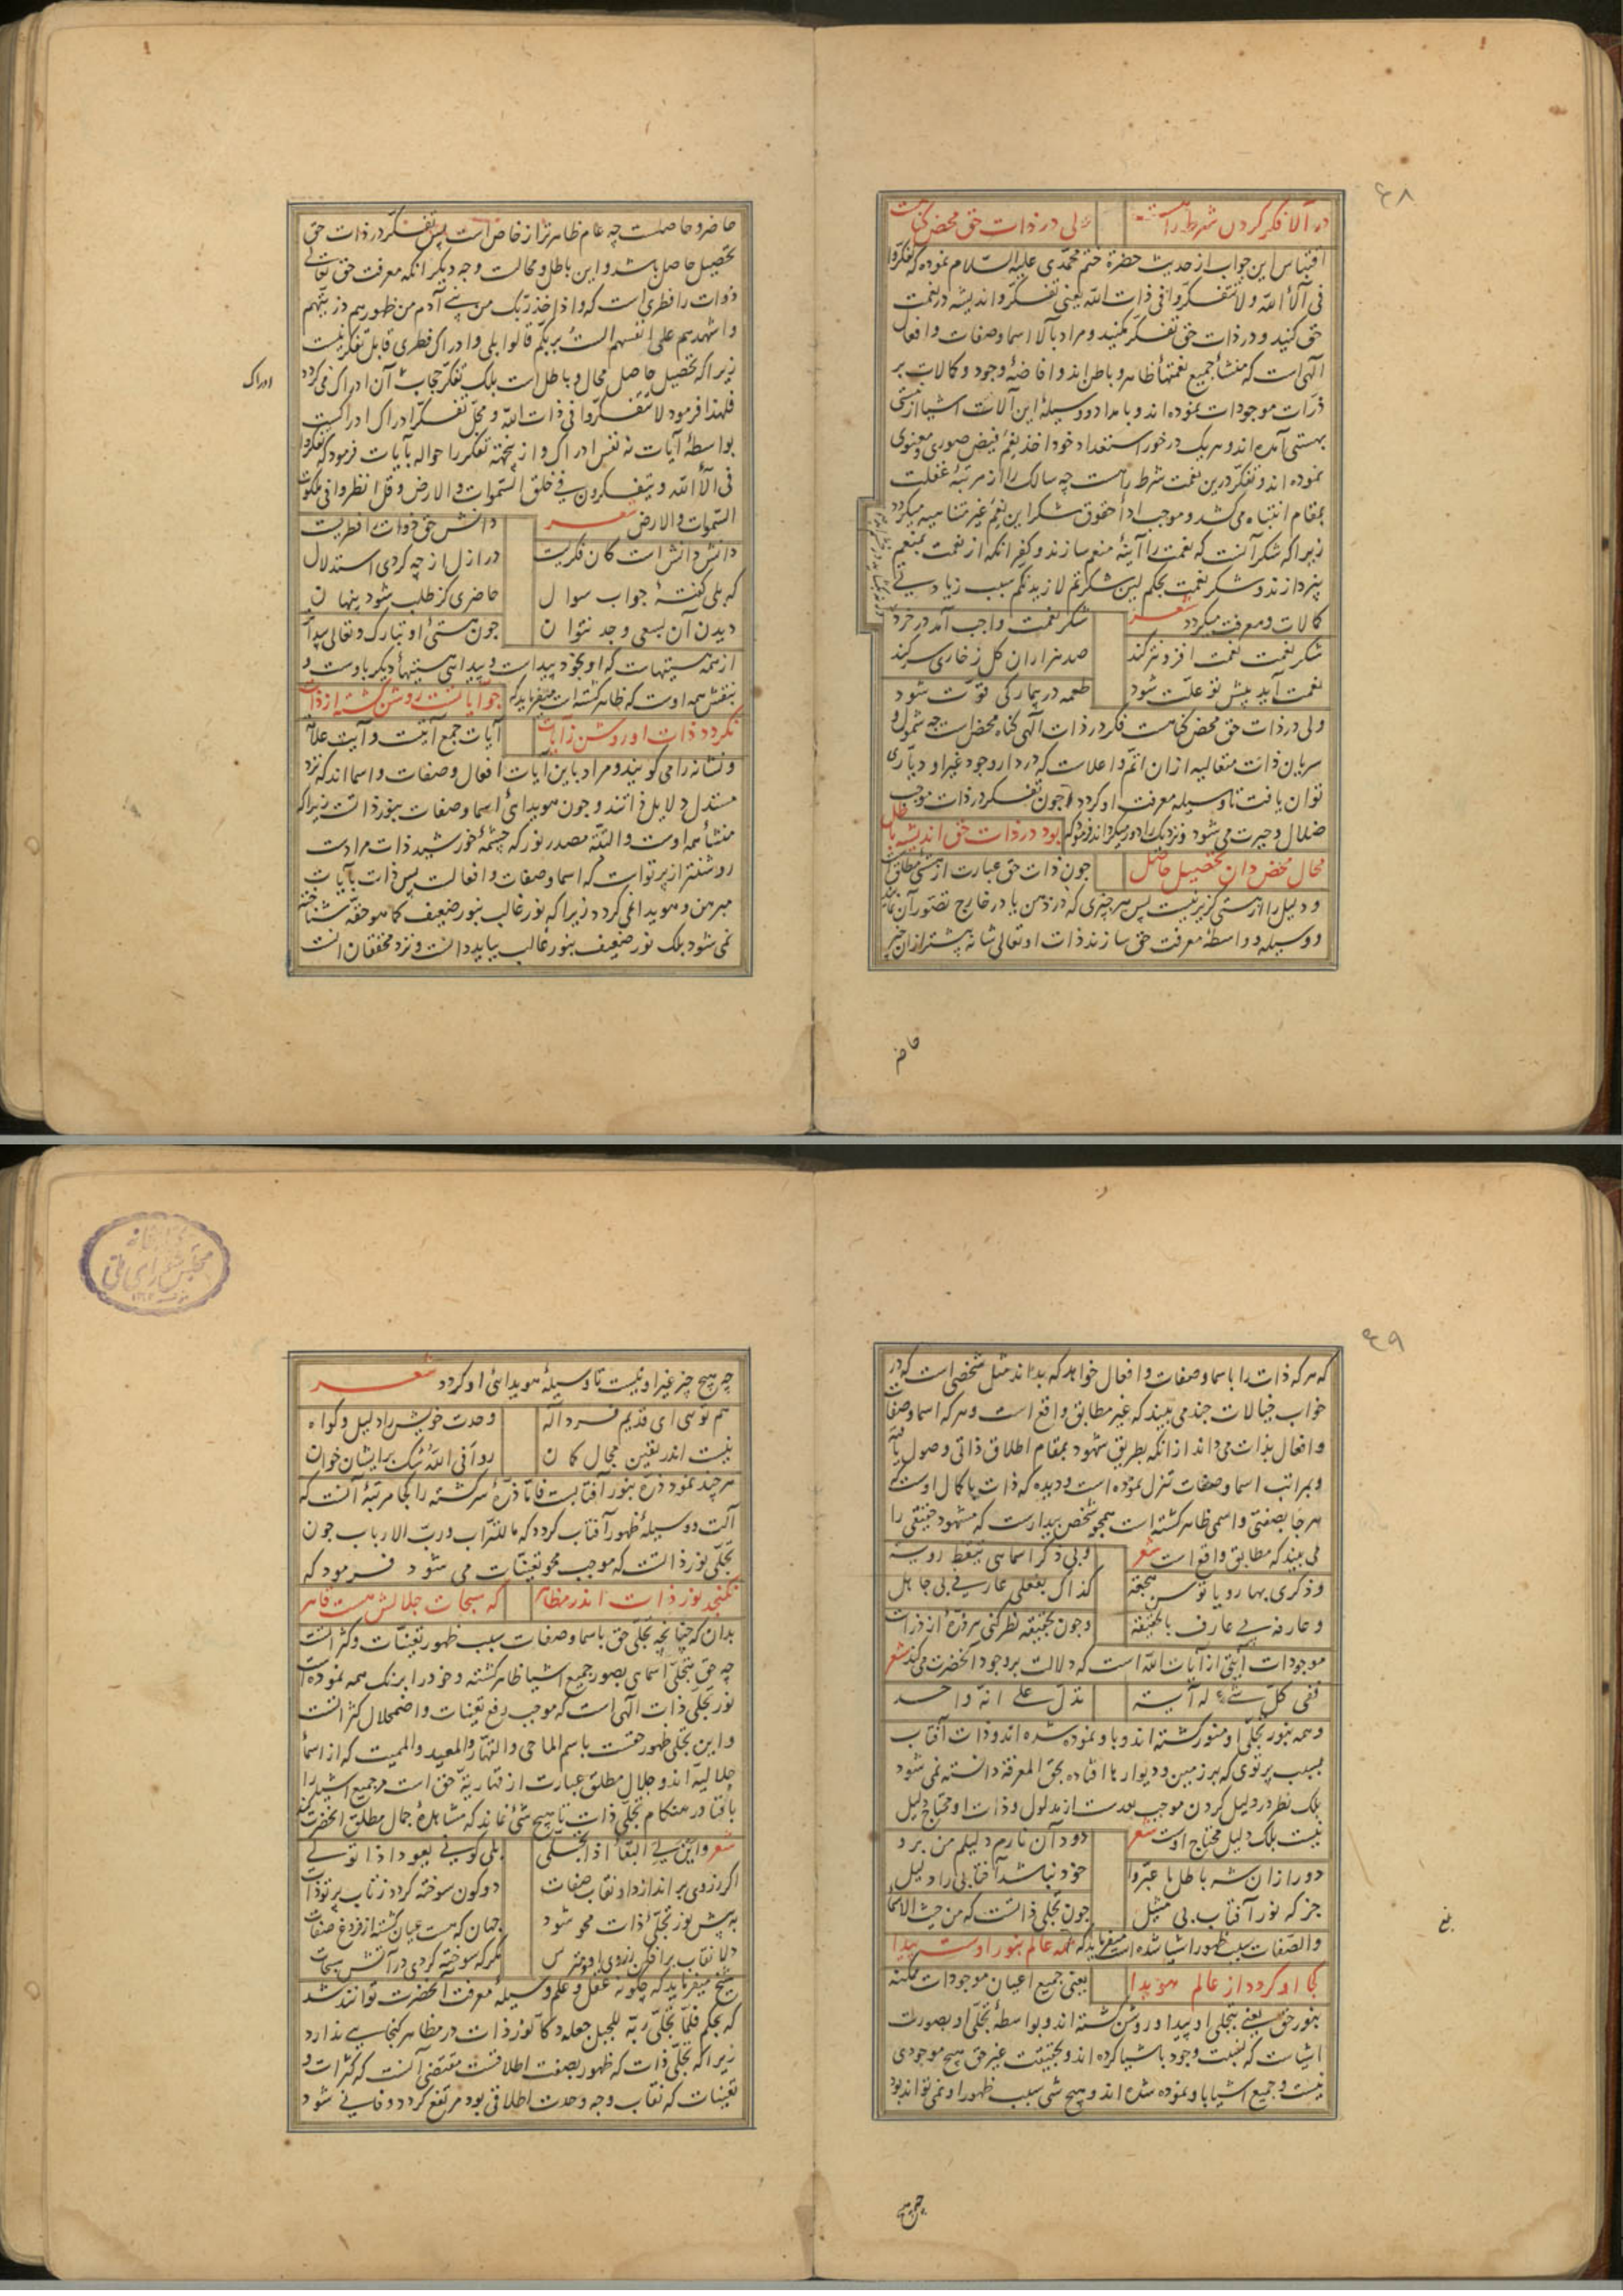 ۶۸
در آلا فکر کردن شرط راهست ولی در ذات حق محض گناهست
اقتباس این جواب از حدیث حضرة ختم محمدی علیه السلام نموده که تفکروا
فی آلاء الله ولا تتفکروا فی ذات الله یعنی تفکر و اندیشه در نعمت
حق کنید و در ذات حق تفکر مکنید و مراد بآلا اسما و صفات و افعال
آلهی است که منشأ جمیع نعمتها ظاهر و باطن اند و افاضهٔ وجود و کمالات بر
ذرات موجودات نموده اند و بامداد و وسیلهٔ این آلات اشیا از نیستی
بهستی آمده اند و هر یک در خور استعداد خود اخذ نعم فیض صوری و معنوی
نموده اند و تفکر درین نعمت شرط راهست چه سالک را از مرتبهٔ غفلت
بمقام انتباه می کشد و موجب ادأ حقوق شکر این نعم غیر متناهیه میکردد
زیرا که شکر آنست که نعمت را آینهٔ منعم سازند و کفر آنکه از نعمت بمنعم
نپردازند و شکر نعمت بحکم لئن شکرتم لازیدنکم سبب زیادتی
کمالات و معرفت میکردد شعر شکر نعمت واجب آمد در خرد
شکر نعمت نعمت افزونتر کند صد هزاران کل ز خاری سر کند
نعمت آید پیش تو علت شود طعمه در بیمار کی قوت شود
ولی در ذات حق محض گناهست فکر در ذات آلهی گناه محض است چه شمول و
سریان ذات متعالیه از ان اتم و اعلاست که در دار وجود غیر او دیاری
توان یافت تا وسیلهٔ معرفت او کردد و چون تفکر در ذات موجب
ضلال و حیرت می شود و نزدیک را دور میکرداند فرمود که بود در ذات حق اندیشه باطل
محال محض دان تحصیل حاصل چون ذات حق عبارت از هستی مطلق است
و دلیل را از هستی کزیر نیست پس هر چیزی که در ذهن یا در خارج تصور آن نمایند
و وسیله و واسطهٔ معرفت حق سازند ذات او تعالی شانه پیشتر از ان چیز
حاضر
حاضر و حاصلست چه عام ظاهرتر از خاص است پس تفکر در ذات حق
تحصیل حاصل باشد و این باطل و محالست وجه دیگر آنکه معرفت حق تعالی
ذوات را فطری است که و اذ اخذ ربک من بنی آدم من ظهورهم ذریتهم
و اشهدهم علی انفسهم الست بربکم قالوا بلی و ادراک فطری قابل تفکر نیست
زیرا که تحصیل حاصل محال و باطل است بلک تفکر حجاب آن ادراک می کردد
ادراک
فلهذا فرمود لا تتفکروا فی ذات الله و محل تفکر ادراک ادراکست
بواسطهٔ آیات نه نفس ادراک و از ینجهة تفکر را حواله بآیات فرمود که تفکروا
فی آلاء الله و یتفکرون فی خلق السموات والارض و قل انظروا فی ملکوت
السموات والارض شعر دانش حق ذوات را فطریست
دانش دانش است کان فکریست در ازل از چه کردی استدلال
که بلی کفتهٔ جواب سوال حاضری کز طلب شود پنهان
دیدن آن بسعی و جد نتوان چون هستی او تبارک و تعالی پیدا
از همه هستیهاست که او بخود پیداست و پیدایی هستیهأ دیکر باوست و
بنقش همه اوست که ظاهر کشته است میفرماید که چو آیاتست روشن کشته از ذات
نکردد ذات او روشن ز آیات آیات جمع آیتست و آیت علامت
و نشانه را می کویند و مراد باین آیات افعال و صفات و اسما اند که نزد
مستدل دلایل ذاتند و چون هویدائ اسما و صفات بنور ذاتست زیرا که
منشأ همه اوست و البته مصدر نور که چشمهٔ خورشید ذات مرادست
روشنتر از پرتو است که اسما و صفات و افعالست پس ذات بآیات
مبرهن و هویدا نمی کردد زیرا که نور غالب بنور ضعیف کما هو حقه شناخته
نمی شود بلک نور ضعیف بنور غالب بباید دانست و نزد محققان آنست
۶۹
که هر که ذات را باسما و صفات و افعال خواهد که بداند مثل شخصی است که در
خواب خیالات چند می بیند که غیر مطابق واقع است و هر که اسما و صفات
و افعال بذات می داند از آنکه بطریق شهود بمقام اطلاق ذاتی وصول یافته
و بمراتب اسما و صفات تنزل نموده است و دیده که ذات با کمال اوست که
هر جا بصفتی و اسمی ظاهر کشته است همچو شخص بیدارست که مشهود حقیقی را
می بیند که مطابق واقع است شعر
وذکری بها رویا
و عارفه بی عارف بالحقیقة و چون بحقیقة نظر کنی هر ذره از ذرات
موجودات آیتی از آیات الله است که دلالت بر وجود آنحضرت می کند شعر
ففی کل شیء له آیة تدل علی انه واحد
و همه بنور تجلی او منور کشته اند و باو نموده شده اند و ذات آفتاب
بسبب پرتوی که بر زمین و دیوارها افتاده بحق المعرفة دانسته نمی شود
بلک نظر در دلیل کردن موجب بعدست از مدلول و ذات او محتاج دلیل
نیست بلک دلیل محتاج اوست شعر دود آن نارم دلیلم من برو
دور از ان شه باطل ما عبروا خود نباشد آفتابی را دلیل
جز که نور آفتاب بی مثیل چون تجلی ذاتست که من حیث الاسما
والصفات سبب ظهور اشیا شده است میفرماید که همه عالم بنور اوست پیدا
کجا او کردد از عالم هویدا یعنی جمیع اعیان موجودات ممکنه
بنور حق یعنی بتجلی او پیدا و روشن کشته اند و بواسطهٔ تجلی او بصورت
اشیاست که نسبت وجود باشیا کرده اند و بحقیقت غیر حق هیچ موجودی
نیست و جمیع اشیا باو نموده شده اند و هیچ شی سبب ظهور او نمی تواند بود
چه هیچ
چه هیچ چیز غیر او نیست تا وسیلهٔ هویدائی او کردد شعر
هم توئی ای قدیم فرد اله وحدت خویش را دلیل و کواه
نیست اندر یقین مجال کمان رو انی الله شک بر ایشان خوان
هر چند نمود ذره بنور آفتابست فاما ذرهٔ سرکشته را کجا مرتبهٔ آنست که
آلت و وسیلهٔ ظهور آفتاب کردد که ما للتراب و رب الارباب چون
تجلی نور ذاتست که موجب محو تعینات می شود فرمود که
نکنجد نور ذات اندر مظاهر که سبحات جلالش هست قاهر
بدان که چنانچه تجلی حق باسما و صفات سبب ظهور تعینات و کثراتست
چه حق بتجلی اسمای بصور جمیع اشیا ظاهر کشته و خود را برنک همه نموده است
نور تجلی ذات آلهی است که موجب رفع تعینات و اضمحلال کثراتست
و این تجلی ظهور حقست باسم الماحی و القهار و المعید و الممیت که از اسمأ
جلالیه اند و جلال مطلق عبارت از قهاریة حق است مر جمیع اشیا را
بافنا در هنکام تجلی ذات تا هیچ شی نماند که مشاهدهٔ جمال مطلق آنحضرت کند
شعر و این بقی البقأ اذا
اکر ز روی بر اندازد او نقاب صفات دو کون سوخته کردد ز تاب پرتو ذات
به پیش نور تجلی ذات محو شود جهان که هست عیان کشته از فروغ صفات
دلا نقاب برافکن ز روی او و مترس مکر که سوخته کردی در آتش سبحات
شیخ میفرماید که چکونه عقل و علم وسیلهٔ معرفت آنحضرت توانند شد
که بحکم فلما تجلی ربه للجبل جعله دکا نور ذات در مظاهر کنجایی ندارد
زیرا که تجلی ذات که ظهور بصفت اطلاقست مقتضی آنست که کثرات و
تعینات که نقاب وجه وحدت اطلاقی بود مرتفع کردد و فانی شود
کتابخانه
مجلس شورای ملی